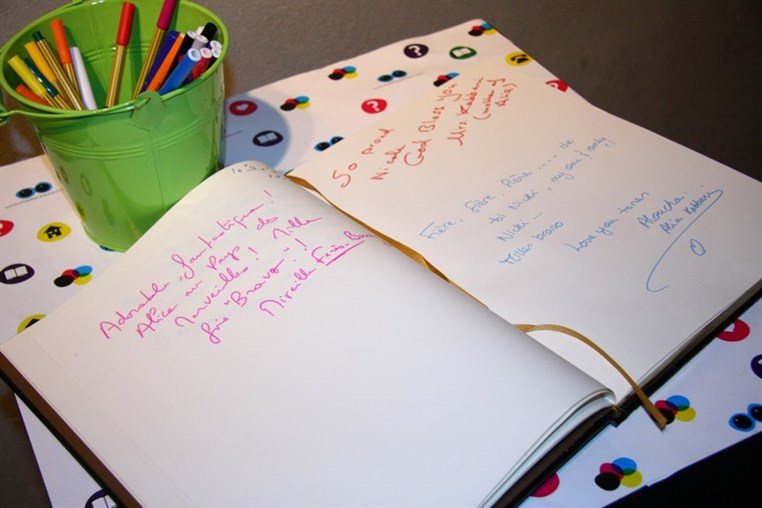 Adorable, fantastique!
Alice au Pays des
Merveilles! Mille
fois "Bravo"!
Mireille
So proud
Nicole God Bless you
Mrs. Kabbani
(mother of
Alia)
Fière, fière, fière ..... de
toi Nicki, my one & only
Nicki...
Miller bravo
Love you tonnes
Alia Kabbani